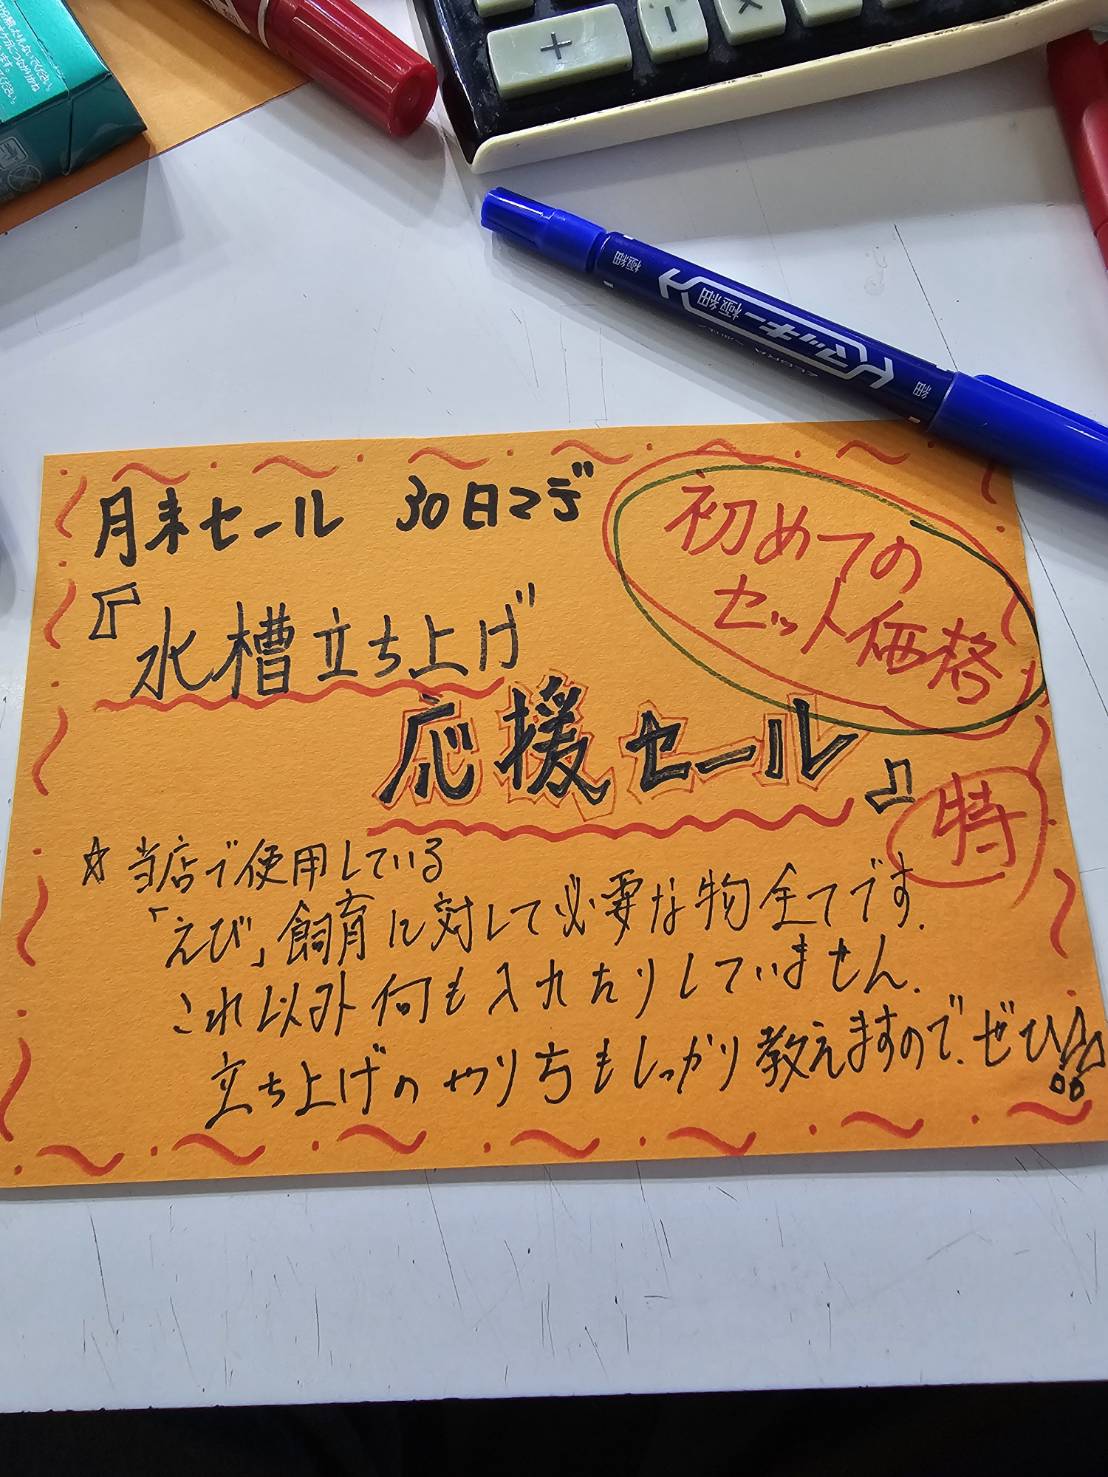 極細
マッキー極細
ZEBRA
細
月末セール 30日マデ
初めての
セット価格
『水槽立ち上げ
応援セール』
特
☆当店で使用している
「えび」飼育に対して必要な物全てです.
これ以外何も入れたりしていません.
立ち上げのやり方もしっかり教えますので、ぜひ!!
+
÷
×